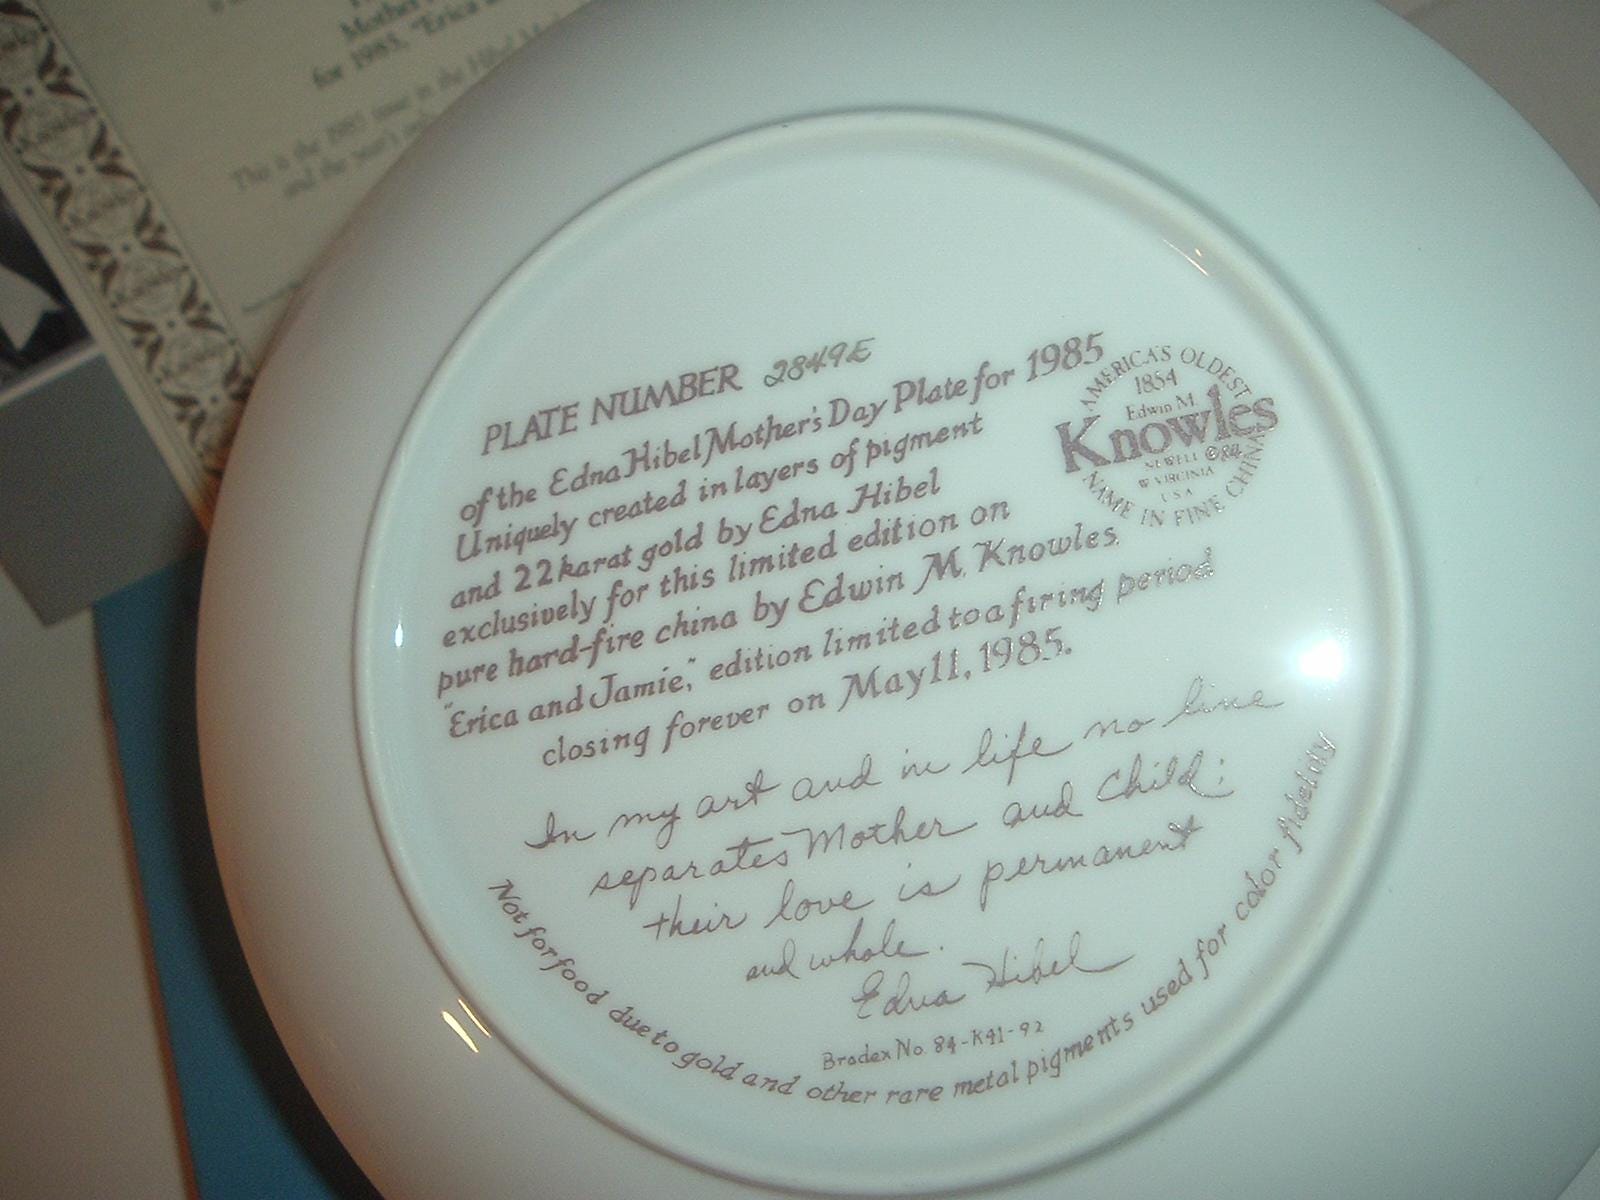 Mother
for 1985, "Erica
This is the 1985 issue in the Hibel
and the year's
PLATE NUMBER 2849E
of the Edna Hibel Mother's Day Plate for 1985
Uniquely created in layers of pigment
and 22 karat gold by Edna Hibel
exclusively for this limited edition on
pure hard-fire china by Edwin M. Knowles.
"Erica and Jamie," edition limited to a firing period
closing forever on May 11, 1985.
AMERICA'S OLDEST
1854
Edwin M.
Knowles
NEWELL ©84
W. VIRGINIA
U S A
NAME IN FINE CHINA
In my art and in life no line
separates Mother and Child:
their love is permanent
and whole.
Edna Hibel
Bradex No. 84-K41-92
Not for food due to gold and other rare metal pigments used for color fidelity